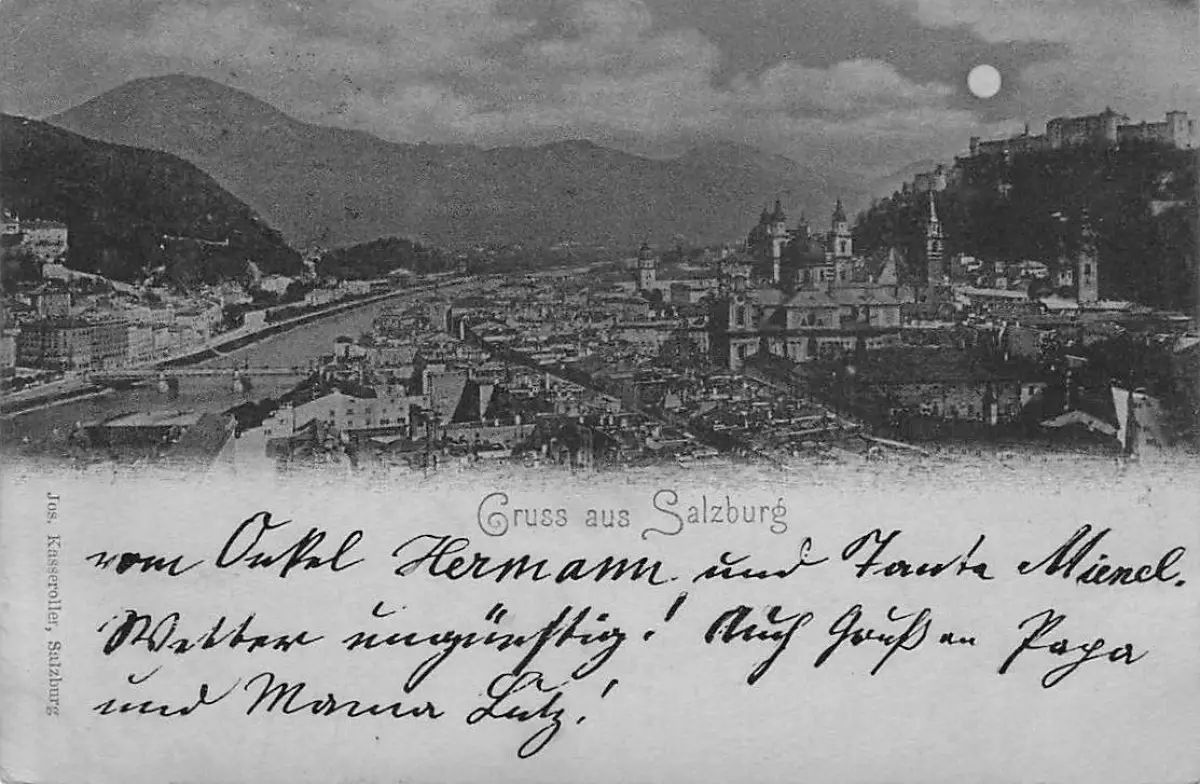 Gruss aus Salzburg
vom Onkel Hermann und Tante Mienel.
Wetter ungünstig! Auch Gruß an Papa
und Mama Lutz!
Jos. Kasseroller, Salzburg